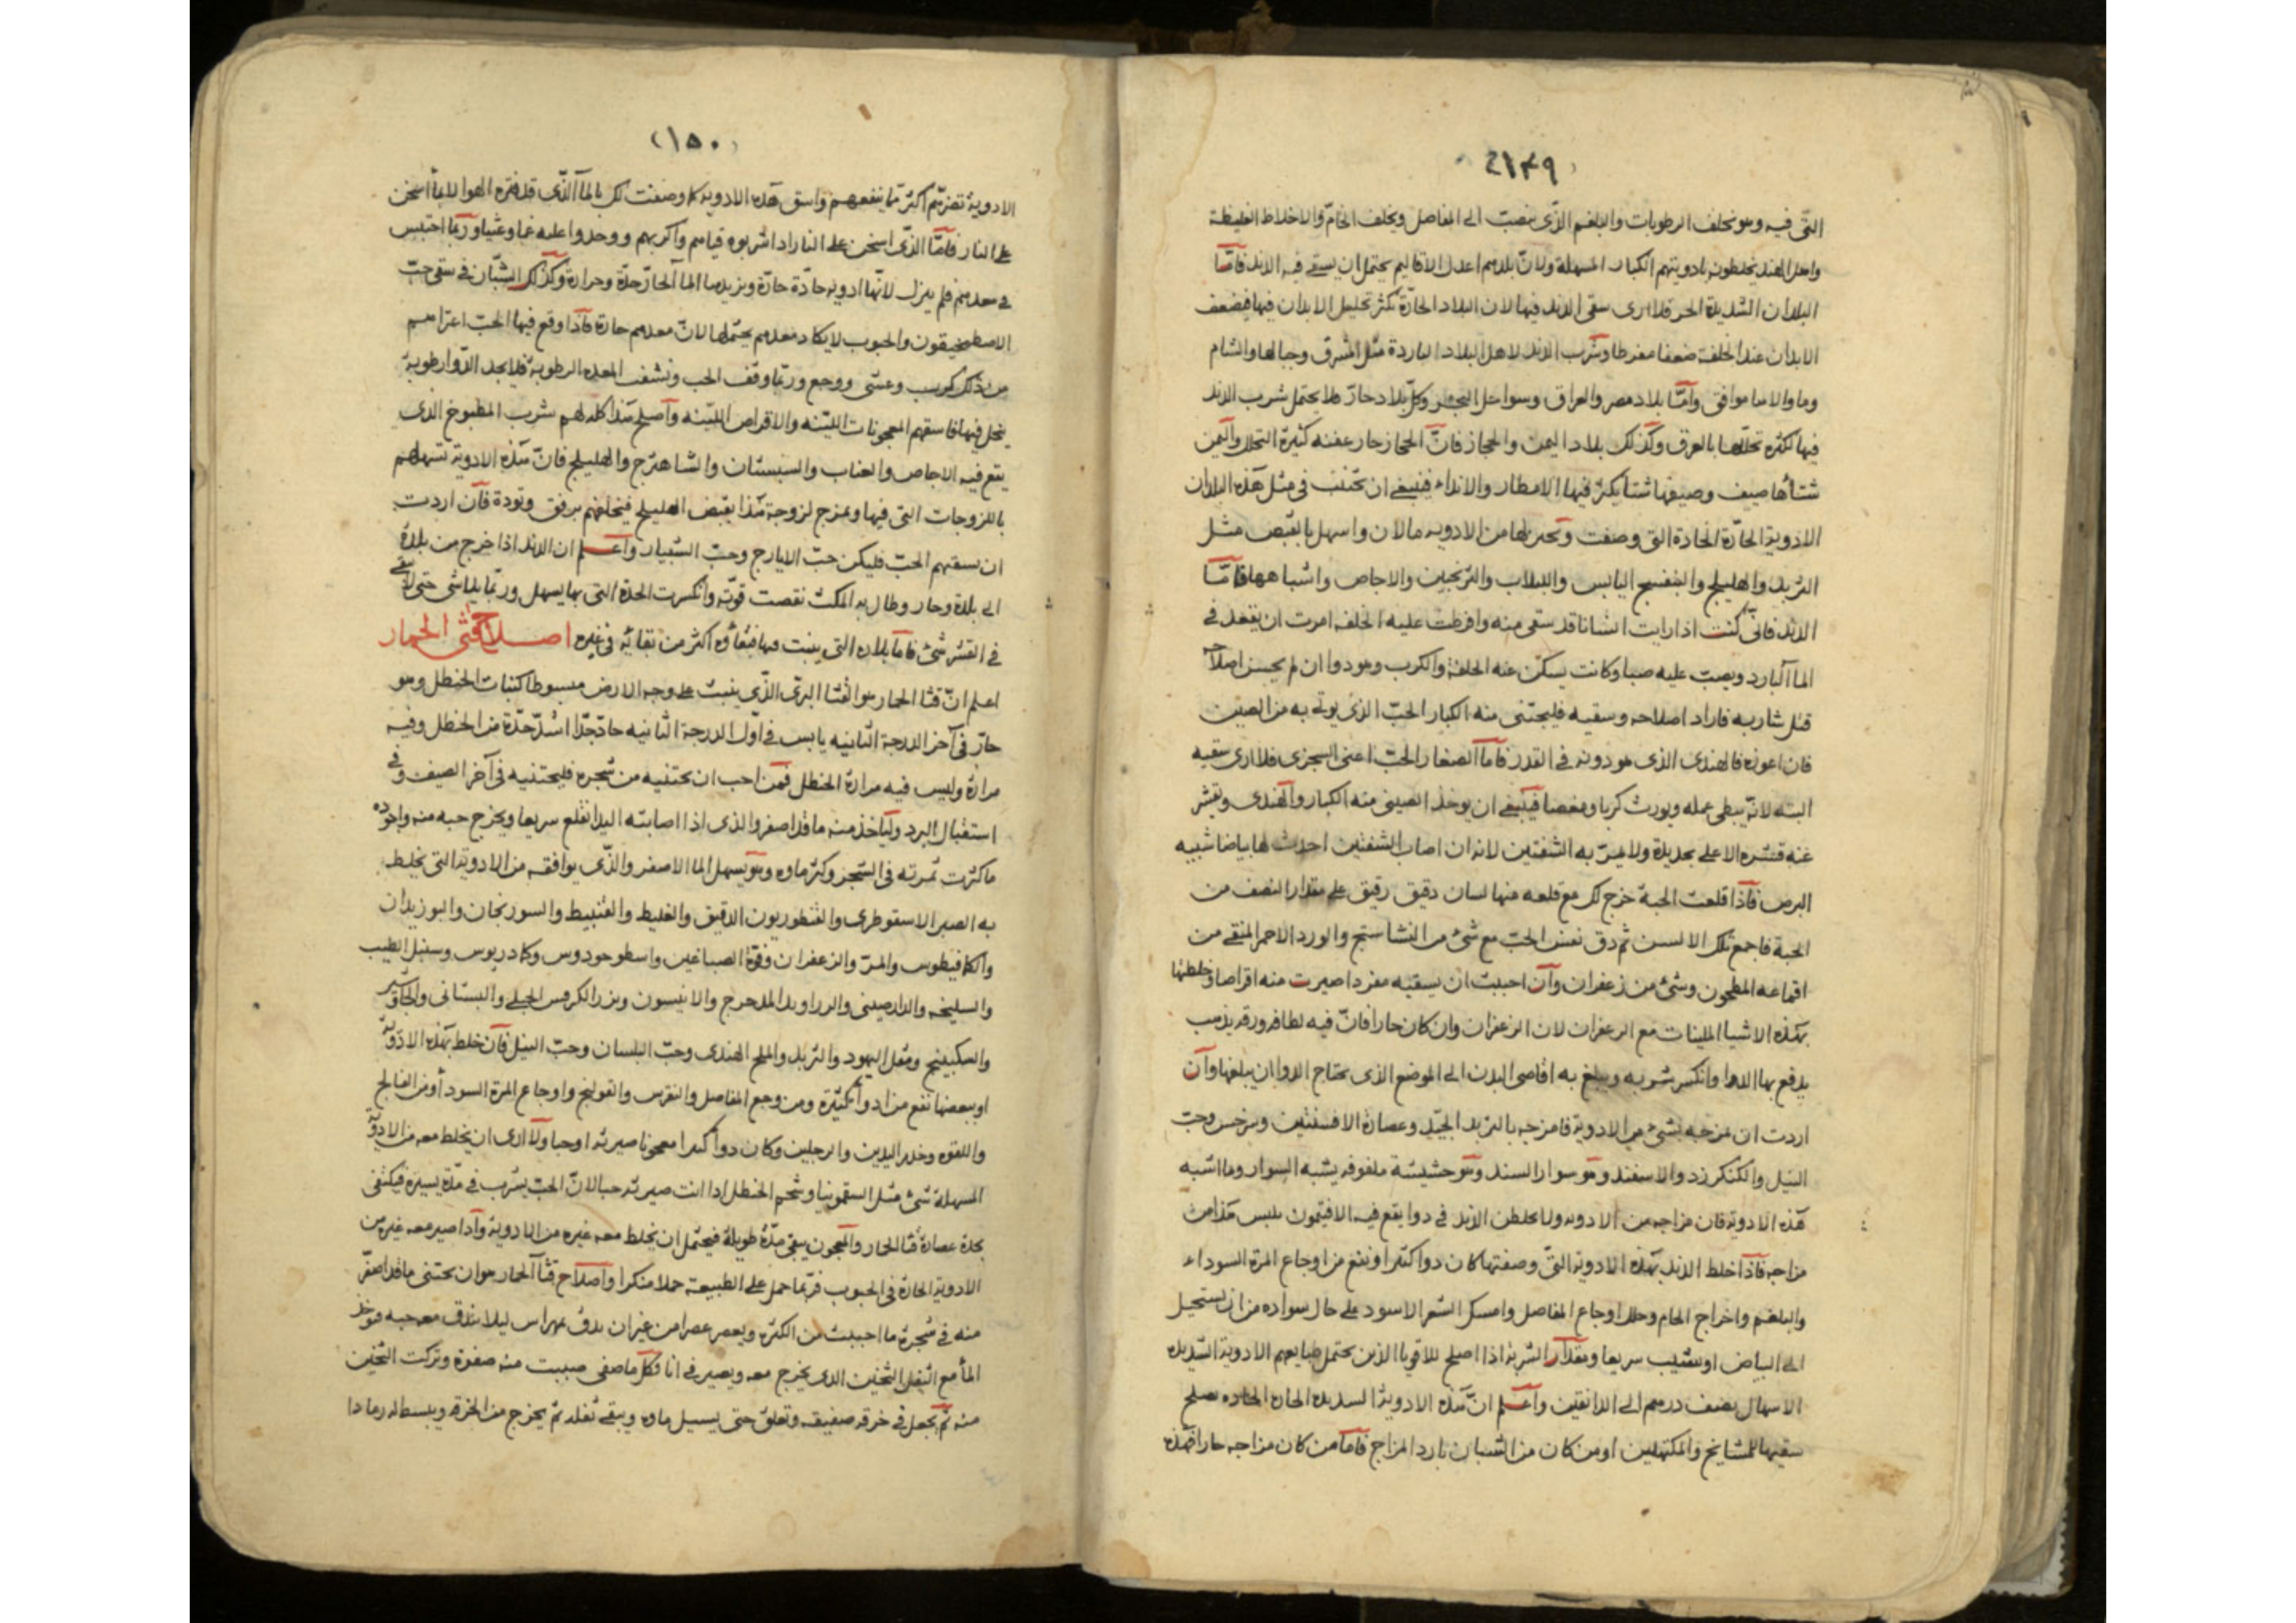 ١٤٩
التى فيه وهو يخلف الرطوبات والبلغم الذى ينصب الى المفاصل ويخلف الخام والاخلاط الغليظة
واهل الهند يخلطونه بادويتهم الكبار المسهلة ولان بلدهم اعدل الاقاليم يحتمل ان يسقى فيه الدند فامّا
البلدان الشديدة الحر فلا ارى سقى الدند فيها لان البلاد الحارّة تكثر تحليل الابدان فيها فيضعف
الابدان عند الخلفة ضعفا مفرطا وشرب الدند لاهل البلاد الباردة مثل المشرق وجبالها والشام
وما والاها موافق وامّا بلاد مصر والعراق وسواحل البحر وكلّ بلاد حارّ فلا يحتمل شرب الدند
فيها لكثرة تحللها بالعرق وكذلك بلاد اليمن والحجاز فانّ الحجاز حار عفنه كثيرة التحلل واليمن
شتاؤها صيف وصيفها شتا يكثر فيها الامطار والانداء فينبغى ان تجتنب فى مثل هذه البلدان
الادوية الحارّة الحادة التى وصفت ويختر لها من الادويه مالان واسهل بالقبض مثل
التربد والهليلج والبنفسج اليابس واللبلاب والترنجبين والاجاص واشباهها فامّا
الدند فانى كنت اذا رايت انسانا قد سقى منه وافرطت عليه الخلفه امرت ان يقعد فى
الماء البارد ويصب عليه صبا وكانت يسكن عنه الخلفة والكرب وهو دوا ان لم يحسن اصلاحه
قتل شاربه فاراد اصلاحه وسقيه فليجتنى منه الكبار الحبّ الذى يوتى به من الصين
فان اعوزه فالهندى الذى هو دونه فى القدر فاما الصغار الحب اعنى السجزى فلا ارى سقيه
البته لانه يبطى عمله ويورث كربا ومغصا فينبغى ان يوخذ الصينى منه الكبار والهندى ويقشر
عنه قشره الاعلى بحديدة ولا يمر به الشفتين لانه ان اصاب الشفتين احدث لها بياضا شبيه
البرص فاذا قلعت الحبة خرج لك مع قلعه منها لسان دقيق رقيق على مقدار النصف من
الحبة فاجمع تلك الالسن ثم دق نفس الحبّ مع شئ من النشاستج والورد الاحمر المنقى من
اقماعه المطحون وشئ من زعفران وان احببت ان يسقيه مفردا صيرت منه اقراصا وخلطتها
بهذه الاشيا الملينات مع الزعفران لان الزعفران وان كان حارا فانّ فيه لطافه ورقه يذهب
يدفع بها الدوا وانكسر شربه ويبلغ به اقاصى البدن الى الموضع الذى يحتاج الدوا ان يبلغها وان
اردت ان تمزجه بشئ من الادوية فامزجه بالتربد الجيّد وعصارة الافسنتين ونرخس وحب
النيل والكنكرزد والاسفند وهو سوار السند وهو حشيشة ملفوفه يشبه السوار وما اشبه
هذه الادوية فان مزاجه من الادويه ولا يخلطن الدند فى دوا يقع فيه الافتيمون فليس هذا من
مزاجه فاذا خلط الدند بهذه الادوية التى وصفتها كان دوا كبيرا ونفع من اوجاع المرة السوداء
والبلغم واخراج الخام وحلل اوجاع المفاصل وامسك الشعر الاسود على حال سواده من ان يستحيل
الى البياض او يشيب سريعا ومقدار الشربة اذا اصلح للاقويا الذين يحتمل طبايعهم الادوية الشديده
الاسهال نصف درهم الى الدانقين واعلم انّ هذه الادوية الشديده الحاره الحاده يصلح
سقيها للمشايخ والمكتهلين او من كان من الشبان بارد المزاج فاما من كان مزاجه حارا فهذه
١٥٠
الادوية تضرّهم اكثر ممّا ينفعهم واسق هذه الادوية كما وصفت لك بالماء الذى قد فتره الهوا لا بما اسخن
على النار فامّا الذى اسخن على النار اذا شربوه قيامهم واكربهم ووجدوا عليه غما وغثيا وربما احتبس
فى معدهم فلم ينزل لانها ادويه حادّة حارّة ويزيدها الماء الحار حدّة وحرارة وكذلك الشبّان فى سقى حب
الاصطمخيقون والحبوب لا يكاد معدهم يحتملها لان معدهم حارة فاذا وقع فيها الحب اعتراهم
من ذلك كرب وغشى ووجع وربما وقف الحب ونشف المعده الرطوبة فلا يجد الدوا رطوبة
ينحل فيها فاسقهم المعجونات الليّنه والاقراص الليّنه واصلح هذا كله لهم شرب المطبوخ الذى
يقع فيه الاجاص والعناب والسبستان والشاهترج والهليلج فانّ هذه الادوية تسهلهم
باللزوجات التى فيها ويمزج لزوجة هذا بقبض الهليلج فيخلفهم برفق وتودة فان اردت
ان يسقيهم الحبّ فليكن حب الايارج وحبّ الشبيار واعلم ان الدند اذا خرج من بلدة
الى بلدة وحار وطال به المكث نقصت قوّته وانكسرت الحدة التى بها يسهل وربّما يتلاشى حتى لا يبقى
فى القشر شئ فاما بلاده التى ينبت فيها فبقاؤه اكثر من بقائه فى غيره اصلاح قثى الحمار
اعلم انّ قثا الحمار هو القثا البرّى الذى ينبت على وجه الارض مبسوطا كنبات الحنظل وهو
حارّ فى آخر الدرجة الثانيه يابس فى اوّل الدرجة الثانيه حادّ جدّا اشدّ حدّة من الحنظل وفيه
مرارة وليس فيه مرارة الحنظل فمن احب ان يجتنيه من شجره فليجتنيه فى آخر الصيف وفى
استقبال البرد ولياخذ منه ما قد اصفر والذى اذا اصابته اليد انقلع سريعا ويخرج حبه منه واجوده
ما كثرت ثمرته فى الشجر وكثر ماوه وهو يسهل الما الاصفر والذى يوافقه من الادوية التى يخلط
به الصبر الاسقوطرى والقنطوريون الدقيق والغليظ والقنبيط والسورنجان والبوزيدان
والكمافيطوس والمرّ والزعفران وفوة الصباغين واسطوخودوس وكمادريوس وسنبل الطيب
والسليخه والدارصينى والزراوند المدحرج والانيسون وبزر الكرفس الجبلى والبستانى والجاوشير
والسكبينج ومقل اليهود والتربد والملح الهندى وحبّ البلسان وحبّ النيل فان خلط بهذه الادوية
او ببعضها نفع من ادوآ كثيرة ومن وجع المفاصل والنقرس والقولنج واوجاع المرة السودا ومن الفالج
واللقوه وخدر اليدين والرجلين وكان دوا كبيرا معجونا صيرته او حبا ولا ارى ان يخلط معه من الادوية
المسهلة شئ مثل السقمونيا وشحم الحنظل اذا انت صيرته حبا لانّ الحبّ يشرب فى مدّة يسيرة فيكتفى
بحدة عصارة قثا الحمار والمعجون يبقى مدّة طويلة فيحتمل ان يخلط معه غيره من الادوية واذا صير معه غيره من
الادوية الحارة فى الحبوب فربّما حمل على الطبيعة حملا منكرا واصلاح قثا الحمار هو ان يجتنى ما قد اصفرّ
منه فى شجرة ما احببت من الكثره ويعصر عصرا من غير ان يدق بمهراس ليلا يندق معه حبه فيوخذ
الما مع الثفل الثخين الذى يخرج معه ويصير فى انا فكل ما صفى صببت منه صفوة وتركت الثخين
منه ثم يجعل فى خرقه صفيقه وتعلق حتى يسيل ماوه ويبقى ثفله ثم يخرج من الخرقه ويبسط له رمادا